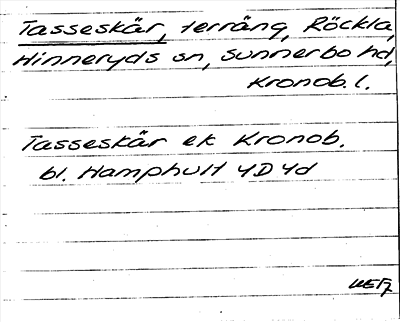 Tasseskär, terräng, Röckla,
Hinneryds sn, Sunnerbo hd,
Kronob. l.
Tasseskär ek Kronob.
bl. Hamphult 4D 4d